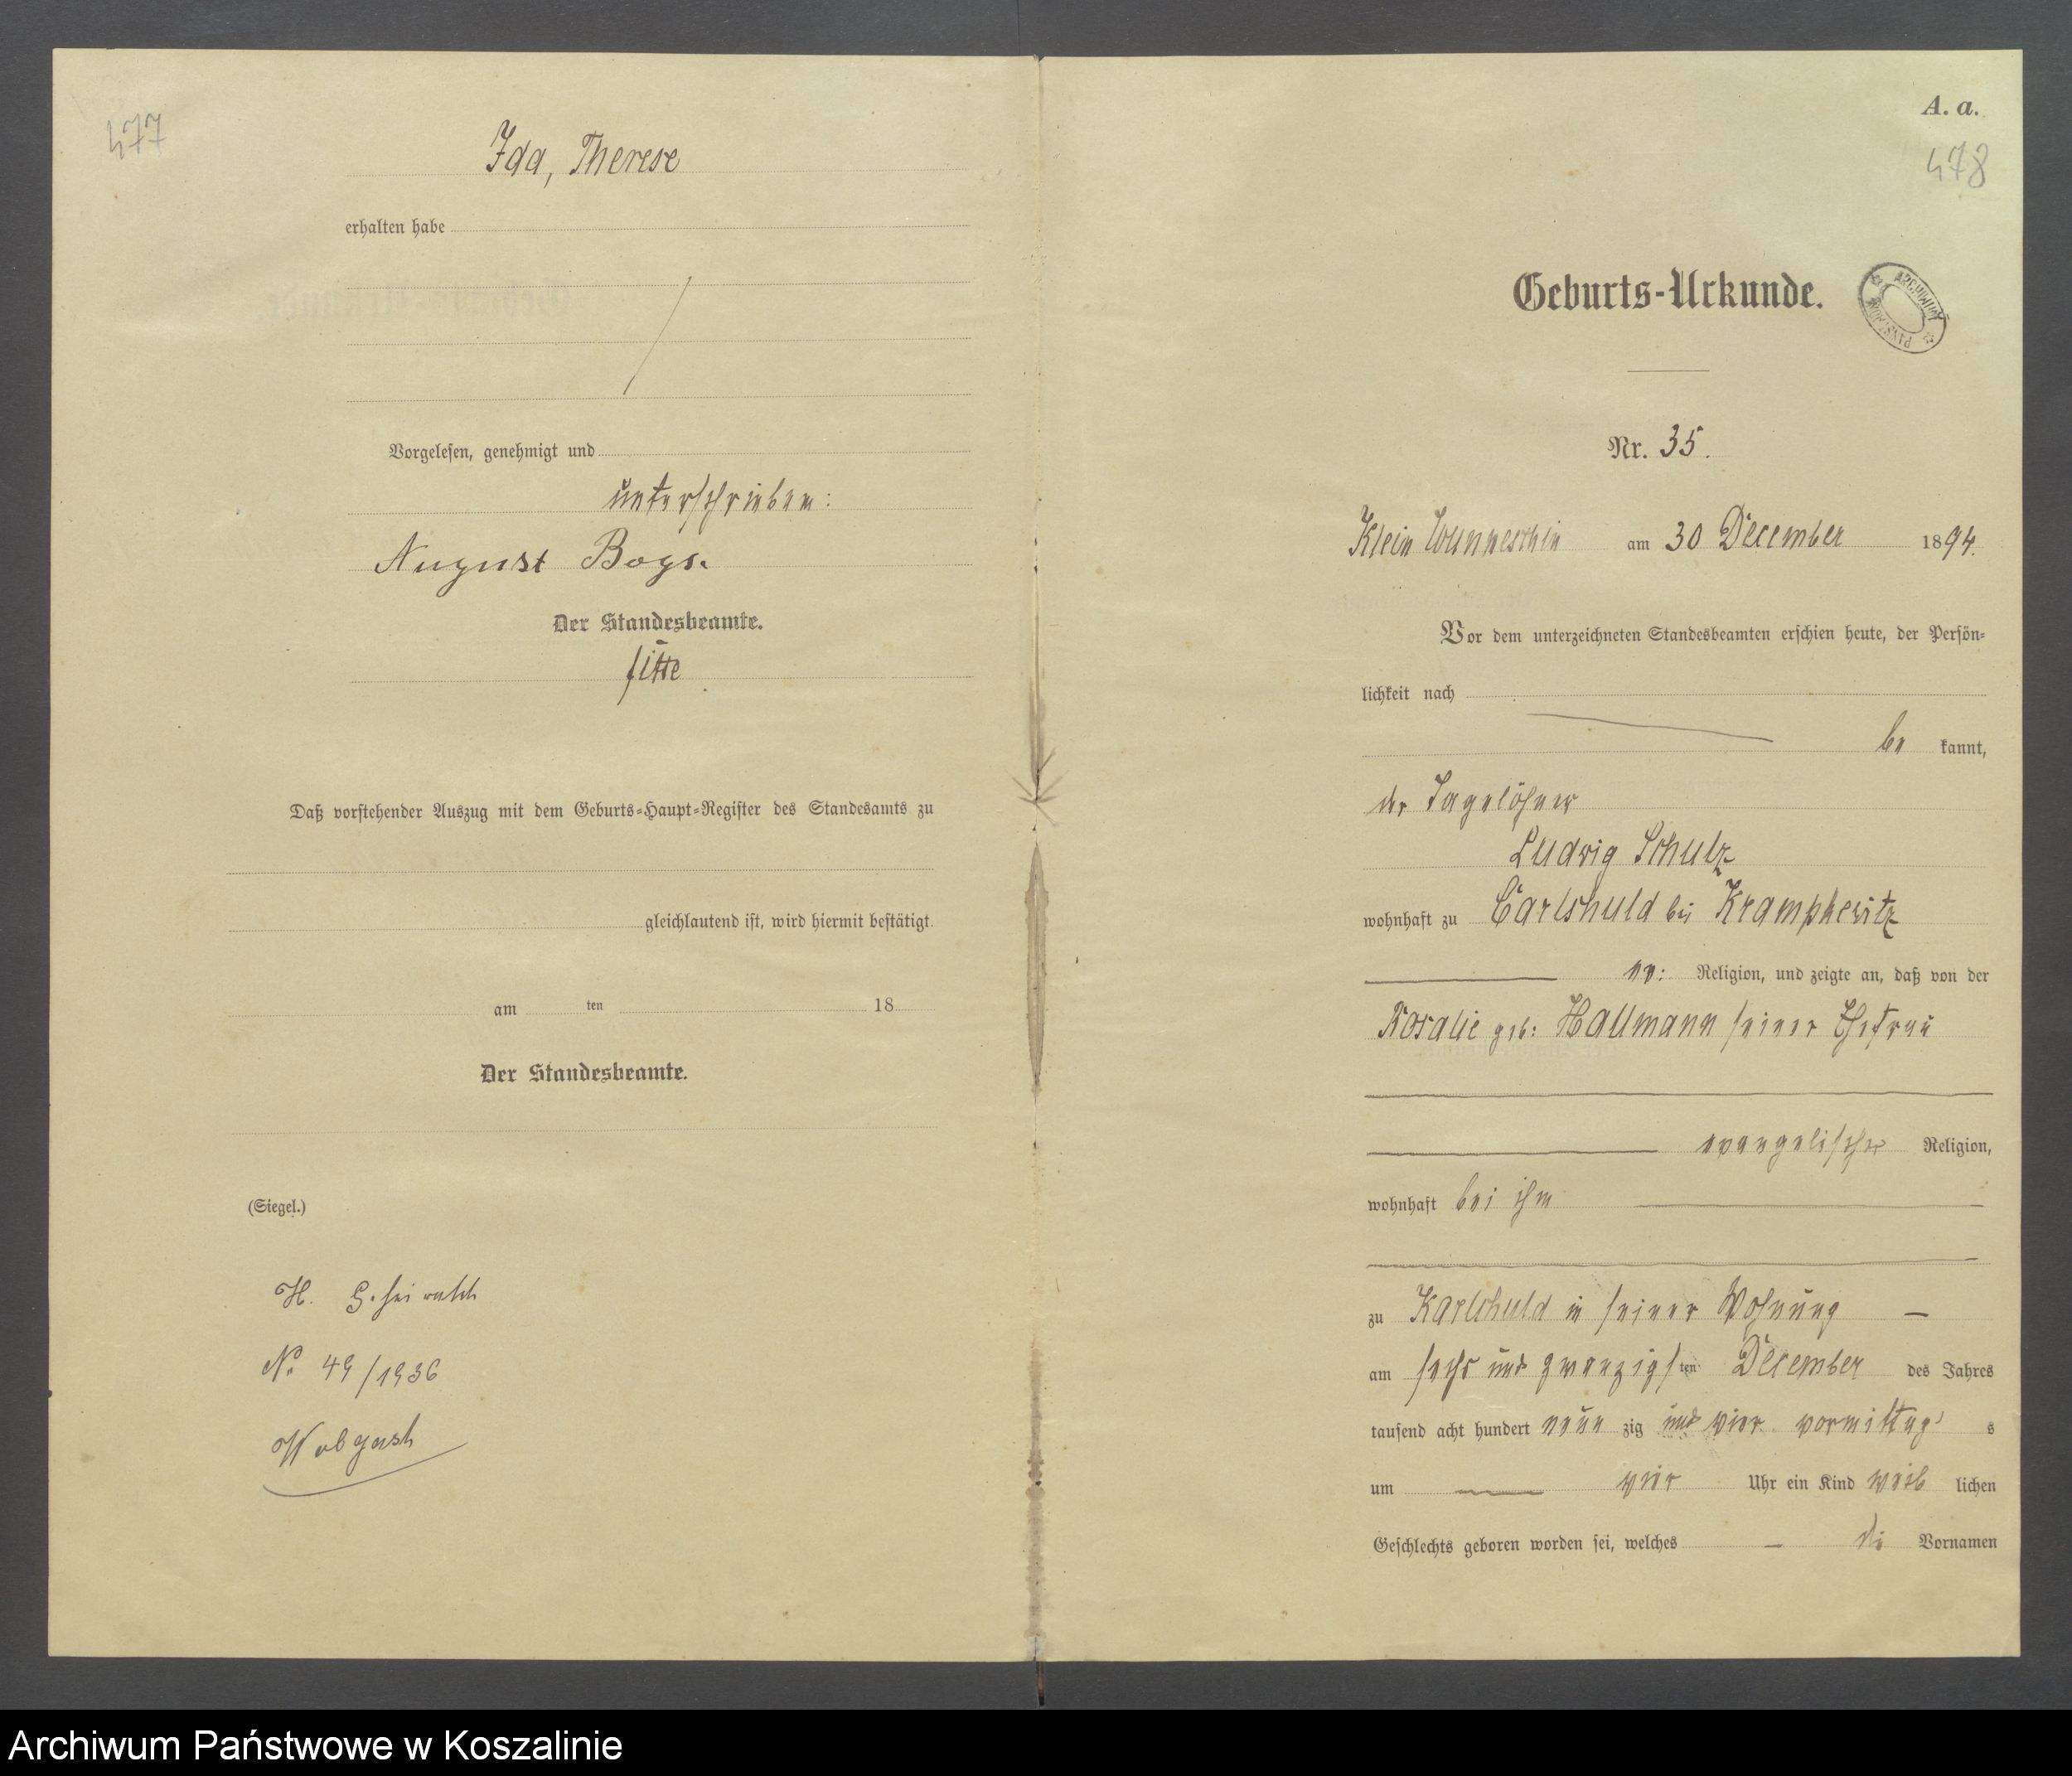 477
Ida, Therese
erhalten habe
Vorgelesen, genehmigt und
unterschrieben:
August Bogs.
Der Standesbeamte.
Daß vorstehender Auszug mit dem Geburts-Haupt-Register des Standesamts zu
gleichlautend ist, wird hiermit bestätigt.
am ten 18
Der Standesbeamte.
(Siegel.)
H.
No 49/1936
A. a.
478
Geburts-Urkunde.
ARCHIWUM PAŃSTWOWE
Nr. 35.
Klein Wunneschin am 30 December 1894.
Vor dem unterzeichneten Standesbeamten erschien heute, der Persön-
lichkeit nach
be kannt,
der Tagelöhner
Ludwig Schulz
wohnhaft zu Carlshuld bei Krampkewitz
ev: Religion, und zeigte an, daß von der
Rosalie geb: Hallmann seiner Ehefrau
evangelischer Religion,
wohnhaft bei ihm
zu Karlshuld in seiner Wohnung
am sechs und zwanzigsten December des Jahres
tausend acht hundert neun zig und vier vormittag s
um vier Uhr ein Kind weib lichen
Geschlechts geboren worden sei, welches die Vornamen
Archiwum Państwowe w Koszalinie